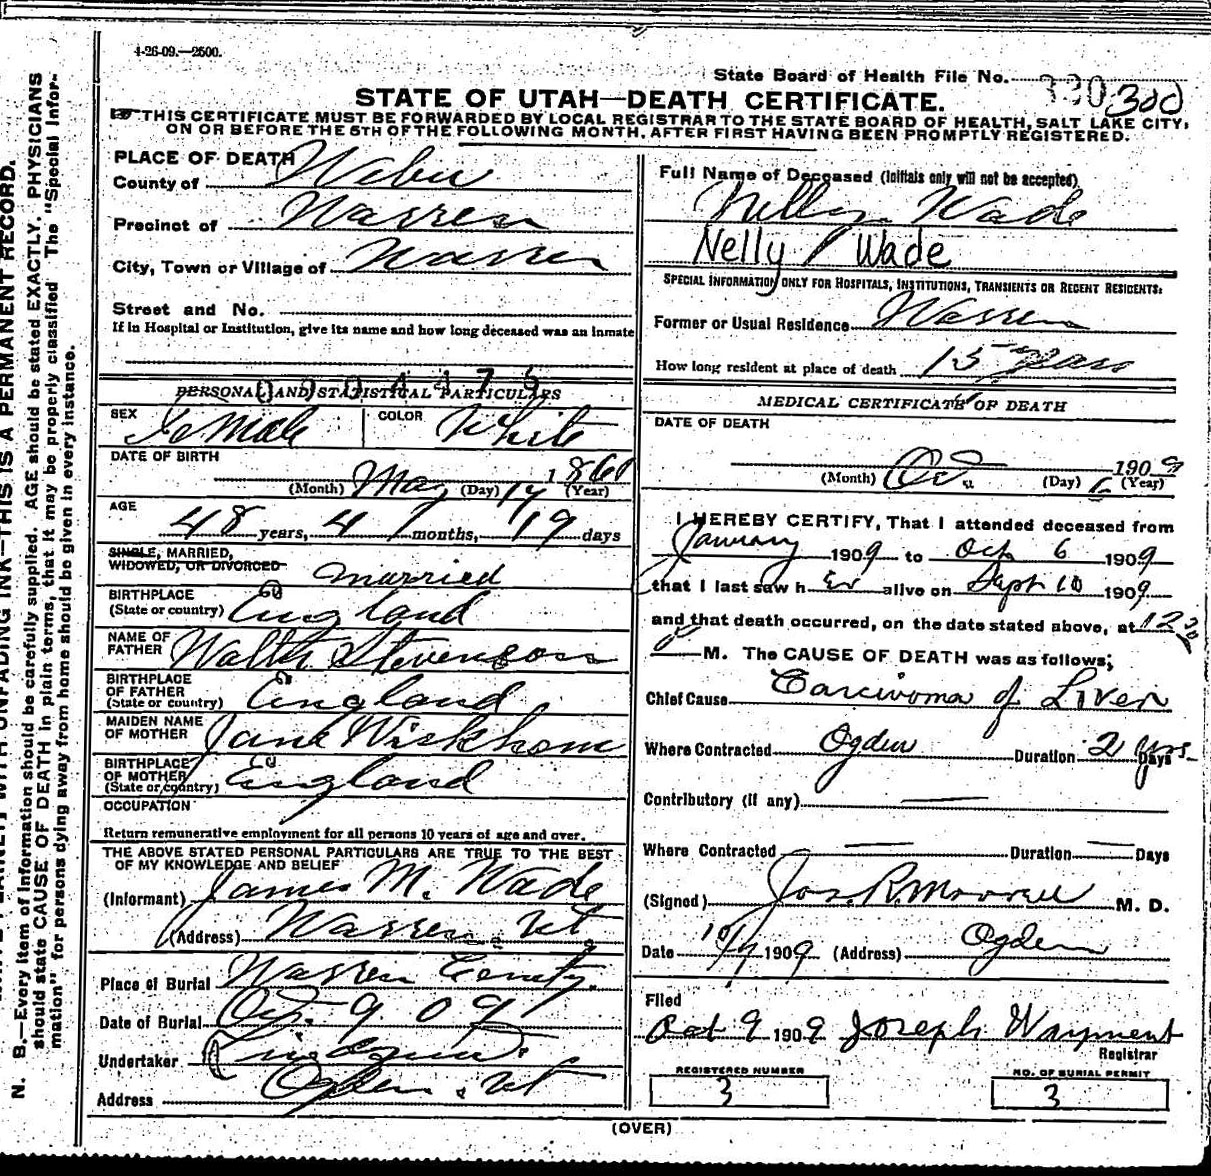 4-26-09.—2500.
State Board of Health File No. 330 300
STATE OF UTAH—DEATH CERTIFICATE.
THIS CERTIFICATE MUST BE FORWARDED BY LOCAL REGISTRAR TO THE STATE BOARD OF HEALTH, SALT LAKE CITY,
ON OR BEFORE THE 5TH OF THE FOLLOWING MONTH, AFTER FIRST HAVING BEEN PROMPTLY REGISTERED.
PLACE OF DEATH
County of Weber
Precinct of Warren
City, Town or Village of Warren
Street and No.
If in Hospital or Institution, give its name and how long deceased was an inmate
PERSONAL AND STATISTICAL PARTICULARS
SEX Female COLOR White
DATE OF BIRTH
(Month) May (Day) 17 1860 (Year)
AGE
48 years, 4 months, 19 days
SINGLE, MARRIED,
WIDOWED, OR DIVORCED married
BIRTHPLACE
(State or country) England
NAME OF
FATHER Walter Stevenson
BIRTHPLACE
OF FATHER
(State or country) England
MAIDEN NAME
OF MOTHER Jane Wickhom
BIRTHPLACE
OF MOTHER
(State or country) England
OCCUPATION
Return remunerative employment for all persons 10 years of age and over.
THE ABOVE STATED PERSONAL PARTICULARS ARE TRUE TO THE BEST
OF MY KNOWLEDGE AND BELIEF
(Informant) James M. Wade
(Address) Warren Ut
Place of Burial Warren Cemety.
Date of Burial Oct. 9. 09
Undertaker
Address Ogden Ut
Full Name of Deceased (Initials only will not be accepted)
Nelly Wade
Nelly Wade
SPECIAL INFORMATION ONLY FOR HOSPITALS, INSTITUTIONS, TRANSIENTS OR RECENT RESIDENTS:
Former or Usual Residence Warren
How long resident at place of death 15 Years
MEDICAL CERTIFICATE OF DEATH
DATE OF DEATH
(Month) Oct. (Day) 6 1909 (Year)
I HEREBY CERTIFY, That I attended deceased from
January 1909 to Oct 6 1909
that I last saw h er alive on Sept 10 1909
and that death occurred, on the date stated above, at 12 30
M. The CAUSE OF DEATH was as follows;
Chief Cause Carcinoma of Liver
Where Contracted Ogden Duration 2 yrs Days
Contributory (if any) —
Where Contracted — Duration — Days
(Signed) Jos. R. Morrell M. D.
Date 10/7 1909 (Address) Ogden
Filed
Oct 9 1909 Joseph Wayment
Registrar
REGISTERED NUMBER
3
NO. OF BURIAL PERMIT
3
(OVER)
THIS IS A PERMANENT RECORD.
N. B.—Every item of information should be carefully supplied. AGE should be stated EXACTLY. PHYSICIANS
should state CAUSE OF DEATH in plain terms, that it may be properly classified. The "Special Infor-
mation" for persons dying away from home should be given in every instance.